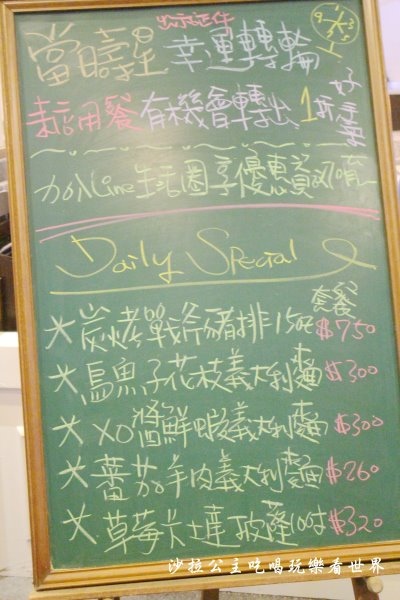 出示証件
當日壽星 幸運轉輪
來店用餐 有機會轉出 1折
加入Line生活圈享優惠資訊唷
Daily Special
套餐
*炭烤戰斧豬排15oz $750
*烏魚子花枝義大利麵 $300
*XO醬鮮蝦義大利麵 $300
*蕃茄羊肉義大利麵 $260
*草莓卡士達披薩10吋 $320
沙拉公主吃喝玩樂看世界